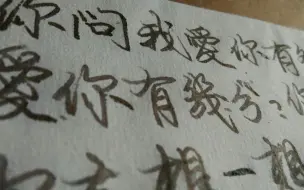 你问我爱你有
爱你有几兮?你
去想一想